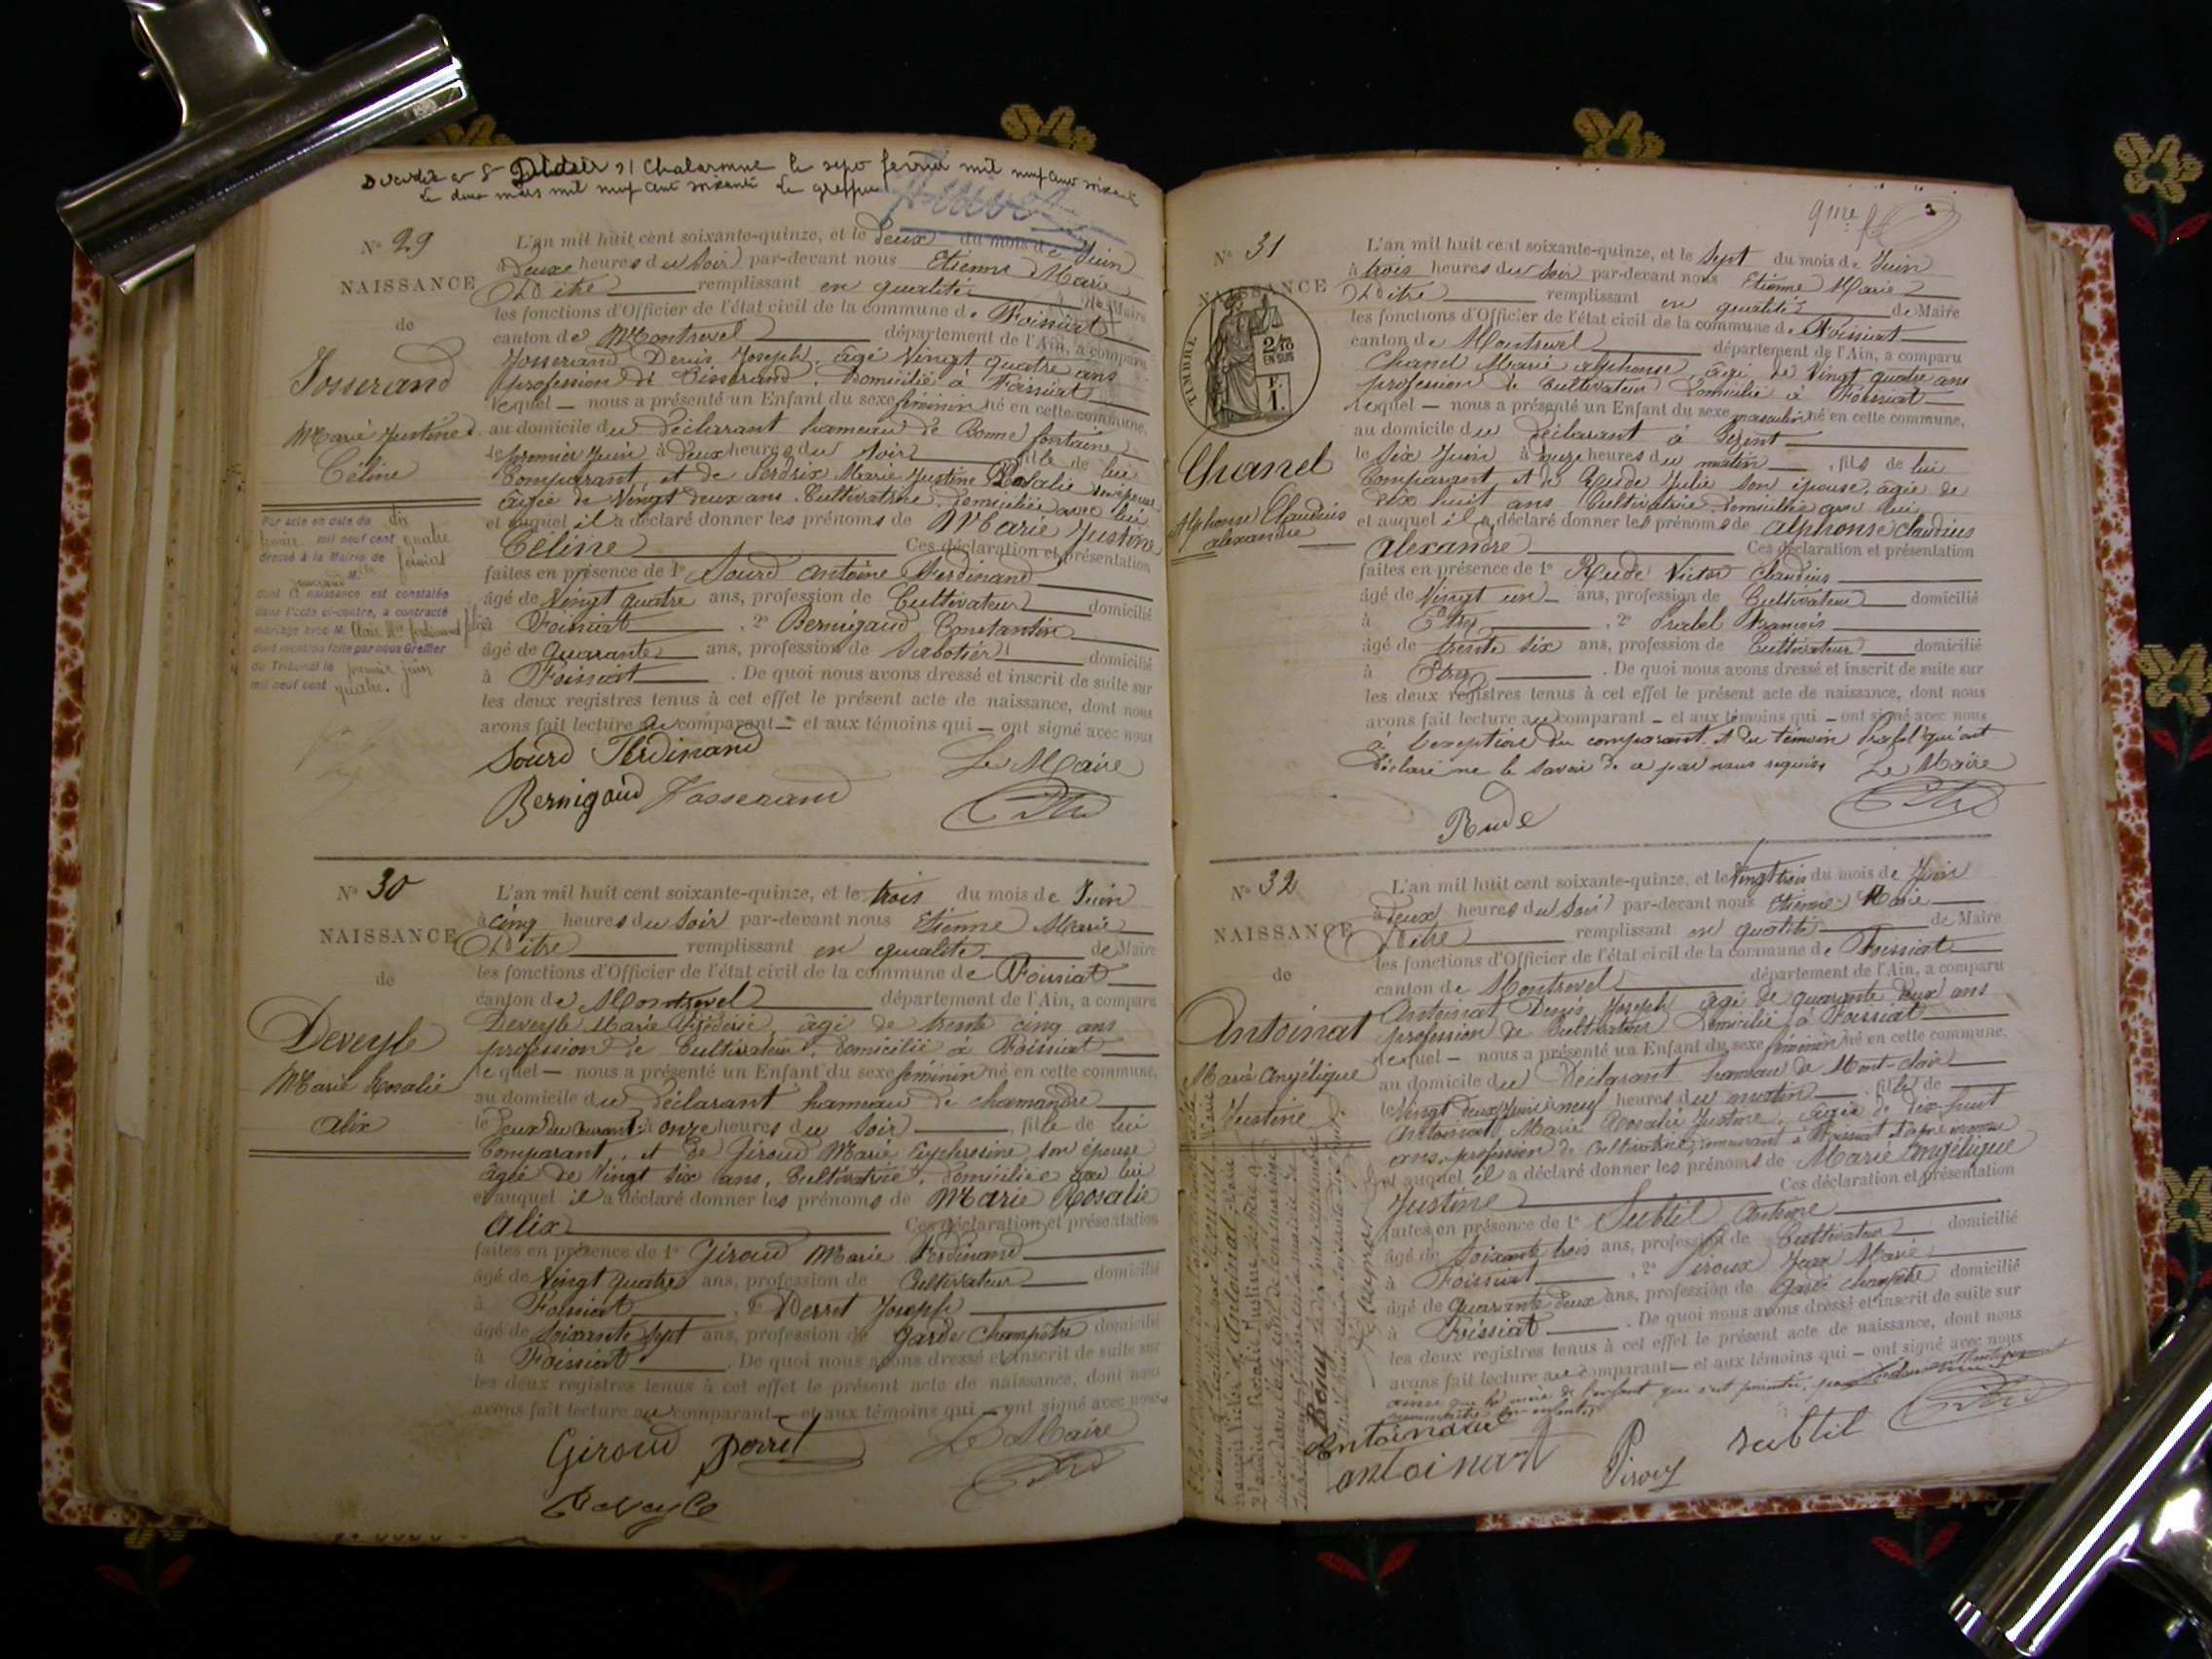 Décédée à St Didier s/ Chalaronne le sept février mil neuf cent soixante
le deux mars mil neuf cent soixante Le greffier
N° 29
NAISSANCE
de
Josserand
Marie Justine
Céline
Par acte en date du dix
mil neuf cent quatre
dressé à la Mairie de foissiat
M.
dont la naissance est constatée
dans l'acte ci-contre, a contracté
mariage avec M.
dont mention faite par nous Greffier
du Tribunal le premier juin
mil neuf cent quatre.
L'an mil huit cent soixante-quinze, et le deux du mois de Juin
à Deux heures du Soir par-devant nous Etienne Marie
remplissant en qualité de Maire
les fonctions d'Officier de l'état civil de la commune de Foissiat
canton de Montrevel département de l'Ain, a comparu
Josserand Denis Joseph, âgé Vingt quatre ans
profession de Tisserand, Domicilié à Foissiat
lequel — nous a présenté un Enfant du sexe féminin né en cette commune,
au domicile du Déclarant hameau de Bonne fontaine
le premier Juin à Deux heures du Soir fille de lui
Comparant, et de Perdrix Marie Justine Rosalie son épouse
âgée de Vingt deux ans Cultivatrice, Domiciliée avec lui
et auquel il a déclaré donner les prénoms de Marie Justine
Céline Ces déclaration et présentation
faites en présence de 1° Sourd Antoine Ferdinand
âgé de Vingt quatre ans, profession de Cultivateur domicilié
à Foissiat , 2° Bernigaud Constantin
âgé de Quarante ans, profession de Sabotier domicilié
à Foissiat . De quoi nous avons dressé et inscrit de suite sur
les deux registres tenus à cet effet le présent acte de naissance, dont nous
avons fait lecture au comparant — et aux témoins qui — ont signé avec nous
Sourd Ferdinand Le Maire
Bernigaud Josserand
N° 30
NAISSANCE
de
Deveyle
Marie Rosalie
Alix
L'an mil huit cent soixante-quinze, et le trois du mois de Juin
à cinq heures du Soir par-devant nous Etienne Marie
remplissant en qualité de Maire
les fonctions d'Officier de l'état civil de la commune de Foissiat
canton de Montrevel département de l'Ain, a comparu
Deveyle Marie Frédéric, âgé de trente cinq ans
profession de Cultivateur, domicilié à Foissiat
lequel — nous a présenté un Enfant du sexe féminin né en cette commune,
au domicile du Déclarant hameau de chamandre
le Deux du Courant à onze heures du Soir , fille de lui
Comparant, et de Giroud Marie Euphrosine, son épouse
âgée de Vingt six ans, Cultivatrice, domiciliée avec lui
et auquel il a déclaré donner les prénoms de Marie Rosalie
Alix Ces déclaration et présentation
faites en présence de 1° Giroud Marie Ferdinand
âgé de Vingt quatre ans, profession de Cultivateur domicilié
à Foissiat , 2° Perret Joseph
âgé de Soixante sept ans, profession de Garde Champêtre domicilié
à Foissiat . De quoi nous avons dressé et inscrit de suite sur
les deux registres tenus à cet effet le présent acte de naissance, dont nous
avons fait lecture au comparant — et aux témoins qui — ont signé avec nous
Giroud Perret Le Maire
Deveyle
9me
N° 31
NAISSANCE
TIMBRE
2/10
EN SUS
F.
1.
Chanel
Alphonse Claudius
alexandre
L'an mil huit cent soixante-quinze, et le Sept du mois de Juin
à trois heures du Soir par-devant nous Etienne Marie
remplissant en qualité de Maire
les fonctions d'Officier de l'état civil de la commune de Foissiat
canton de Montrevel département de l'Ain, a comparu
Chanel Marie alphonse, âgé de Vingt quatre ans
profession de Cultivateur Domicilié à Foissiat
lequel — nous a présenté un Enfant du sexe masculin né en cette commune,
au domicile du Déclarant à
le Six Juin à onze heures du matin , fils de lui
Comparant, et de Rude Julie son épouse, âgée de
dix huit ans Cultivatrice domiciliée avec lui
et auquel il a déclaré donner les prénoms de alphonse Claudius
Alexandre Ces déclaration et présentation
faites en présence de 1° Rude Victor Claudius
âgé de Vingt un ans, profession de Cultivateur domicilié
à Etrez , 2° Prabel François
âgé de trente six ans, profession de Cultivateur domicilié
à Etrez . De quoi nous avons dressé et inscrit de suite sur
les deux registres tenus à cet effet le présent acte de naissance, dont nous
avons fait lecture au comparant — et aux témoins qui — ont signé avec nous
à l'exception du comparant et du témoin Prabel qui ont
Déclaré ne le Savoir de ce par nous requis, Le Maire
Rude
N° 32
NAISSANCE
de
Antoinat
Marie Angélique
Justine
L'an mil huit cent soixante-quinze, et le Vingt trois du mois de Juin
à Deux heures du Soir par-devant nous Etienne Marie
remplissant en qualité de Maire
les fonctions d'Officier de l'état civil de la commune de Foissiat
canton de Montrevel département de l'Ain, a comparu
Antoinat Denis Joseph âgé de quarante deux ans
profession de Cultivateur Domicilié à Foissiat
lequel — nous a présenté un Enfant du sexe féminin né en cette commune,
au domicile du Déclarant hameau de Mont-clair
le Vingt deux Juin à neuf heures du matin , fille de
Antoinat Marie Rosalie Justine, âgée de Dix-huit
ans, profession de Cultivatrice, demeurant à Foissiat
et auquel il a déclaré donner les prénoms de Marie Angélique
Justine Ces déclaration et présentation
faites en présence de 1° Subtil Antoine
âgé de Soixante trois ans, profession de Cultivateur domicilié
à Foissiat , 2° Piroux Jean Marie
âgé de Quarante deux ans, profession de Garde champêtre domicilié
à Foissiat . De quoi nous avons dressé et inscrit de suite sur
les deux registres tenus à cet effet le présent acte de naissance, dont nous
avons fait lecture au comparant — et aux témoins qui — ont signé avec nous
ainsi que la mère de l'enfant qui s'est présentée, pour
reconnaître son enfant.
antoinat subtil